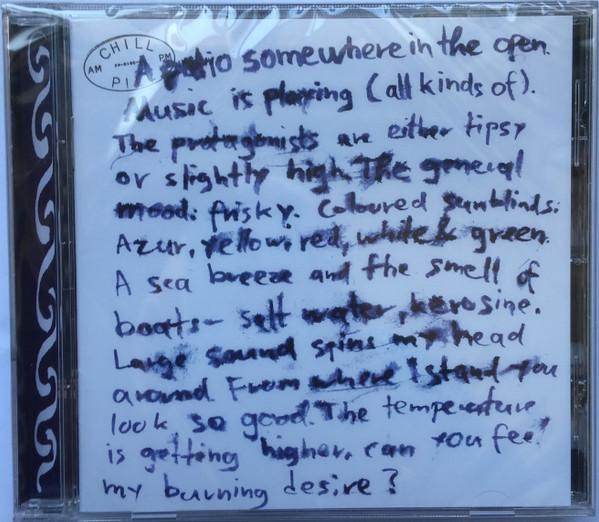 CHILL
AM PM
PILL
A patio somewhere in the open.
Music is playing (all kinds of).
The protagonists are either tipsy
or slightly high. The general
mood: frisky. Coloured sunblinds:
Azur, yellow, red, white & green.
A sea breeze and the smell of
boats - salt water, kerosine.
Large sound spins my head
around. From where I stand you
look so good. The temperature
is getting higher, can you feel
my burning desire?